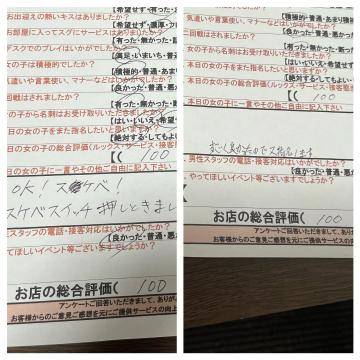 お出迎えの熱いキスはありましたか?
【希望せず・有った
お部屋に入ってスグにサービスは
【希望せず・濃厚・フ
【有った・無かった・
デスクでのプレイはいかがでしたか?
【満足・いまいち・普
女の子は積極的でしたか?
【積極的・普通・あまり
気遣いや言葉使い、マナーなどはいかがでしたか?
【良かった・普通・悪か
回戦はされましたか?
【有った・無かった・断
の子から名刺はお受け取りいただきましたか?
【はい・いいえ・希望せ
日の女の子をまた指名したいと思いますか?
【絶対する!してもよい
日の女の子の総合評価(ルックス・サービス・接客
【( 100
日の女の子に一言やその他ご自由に記入下さい
OK! スケベ!
スケベスイッチ押しときまし
男性スタッフの電話・接客対応はいかがでしたか?
【良かった・普通・悪か
てほしいイベント等ございますでしょうか?
お店の総合評価( 100
アンケートご回答いただきまして、ありが
お客様からのご意見ご感想を元にご提供サービスの向上
【積極的・普通・あま
気遣いや言葉使い、マナーなどはいかがでしたか?
【良かった・普通・悪
回戦はされましたか?
【有った・無かった・
女の子から名刺はお受け取りいただきましたか?
【はい・いいえ・希望
本日の女の子をまた指名したいと思いますか?
【絶対する!してもよい
本日の女の子の総合評価(ルックス・サービス・接客
【( 100
本日の女の子に一言やその他ご自由に記入下さい
すごく良かったので又指名します
男性スタッフの電話・接客対応はいかがでしたか?
【良かった・普通・悪
やってほしいイベント等ございますでしょうか?
お店の総合評価( 100
アンケートご回答いただきまして、あり
お客様からのご意見ご感想を元にご提供サービスの